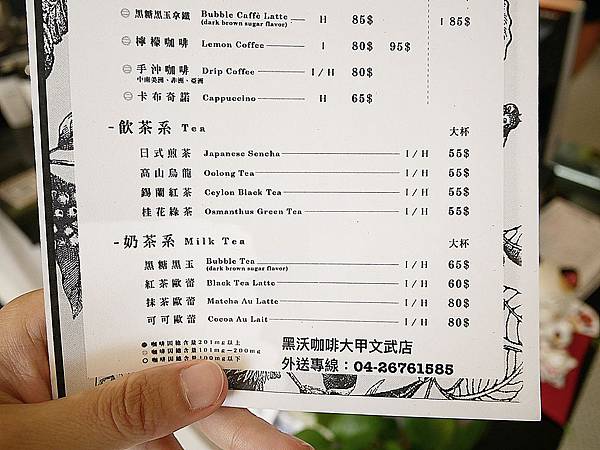 黑糖黑玉拿鐵 Bubble Caffè Latte H 85$ I 85$
(dark brown sugar flavor)
檸檬咖啡 Lemon Coffee I 80$ 95$
手沖咖啡 Drip Coffee I / H 80$
中南美洲、非洲、亞洲
卡布奇諾 Cappuccino H 65$
-飲茶系 Tea 大杯
日式煎茶 Japanese Sencha I / H 55$
高山烏龍 Oolong Tea I / H 55$
錫蘭紅茶 Ceylon Black Tea I / H 55$
桂花綠茶 Osmanthus Green Tea I / H 55$
-奶茶系 Milk Tea 大杯
黑糖黑玉 Bubble Tea I / H 65$
(dark brown sugar flavor)
紅茶歐蕾 Black Tea Latte I / H 60$
抹茶歐蕾 Matcha Au Lait I / H 80$
可可歐蕾 Cocoa Au Lait I / H 80$
咖啡因總含量201mg以上
咖啡因總含量101mg－200mg
咖啡因總含量100mg以下
黑沃咖啡大甲文武店
外送專線：04-26761585